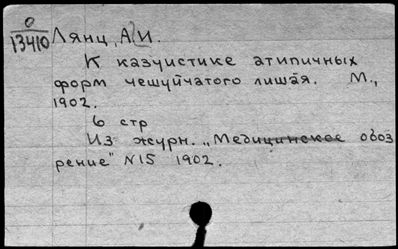 О
13410 Лянц, А. И.
К казуистике атипичных
форм чешуйчатого лишая. М.,
1902.
6 стр
Из журн. „Медицинское обоз
рение" N15 1902.